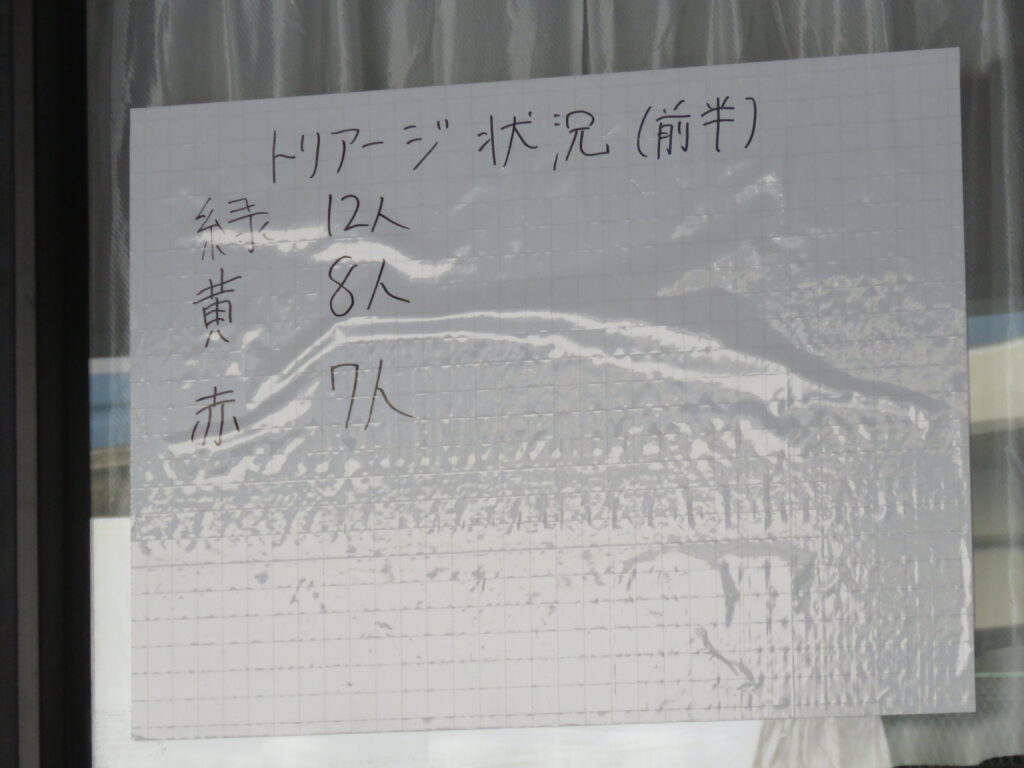 トリアージ 状況 (前半)
緑 12人
黄 8人
赤 7人